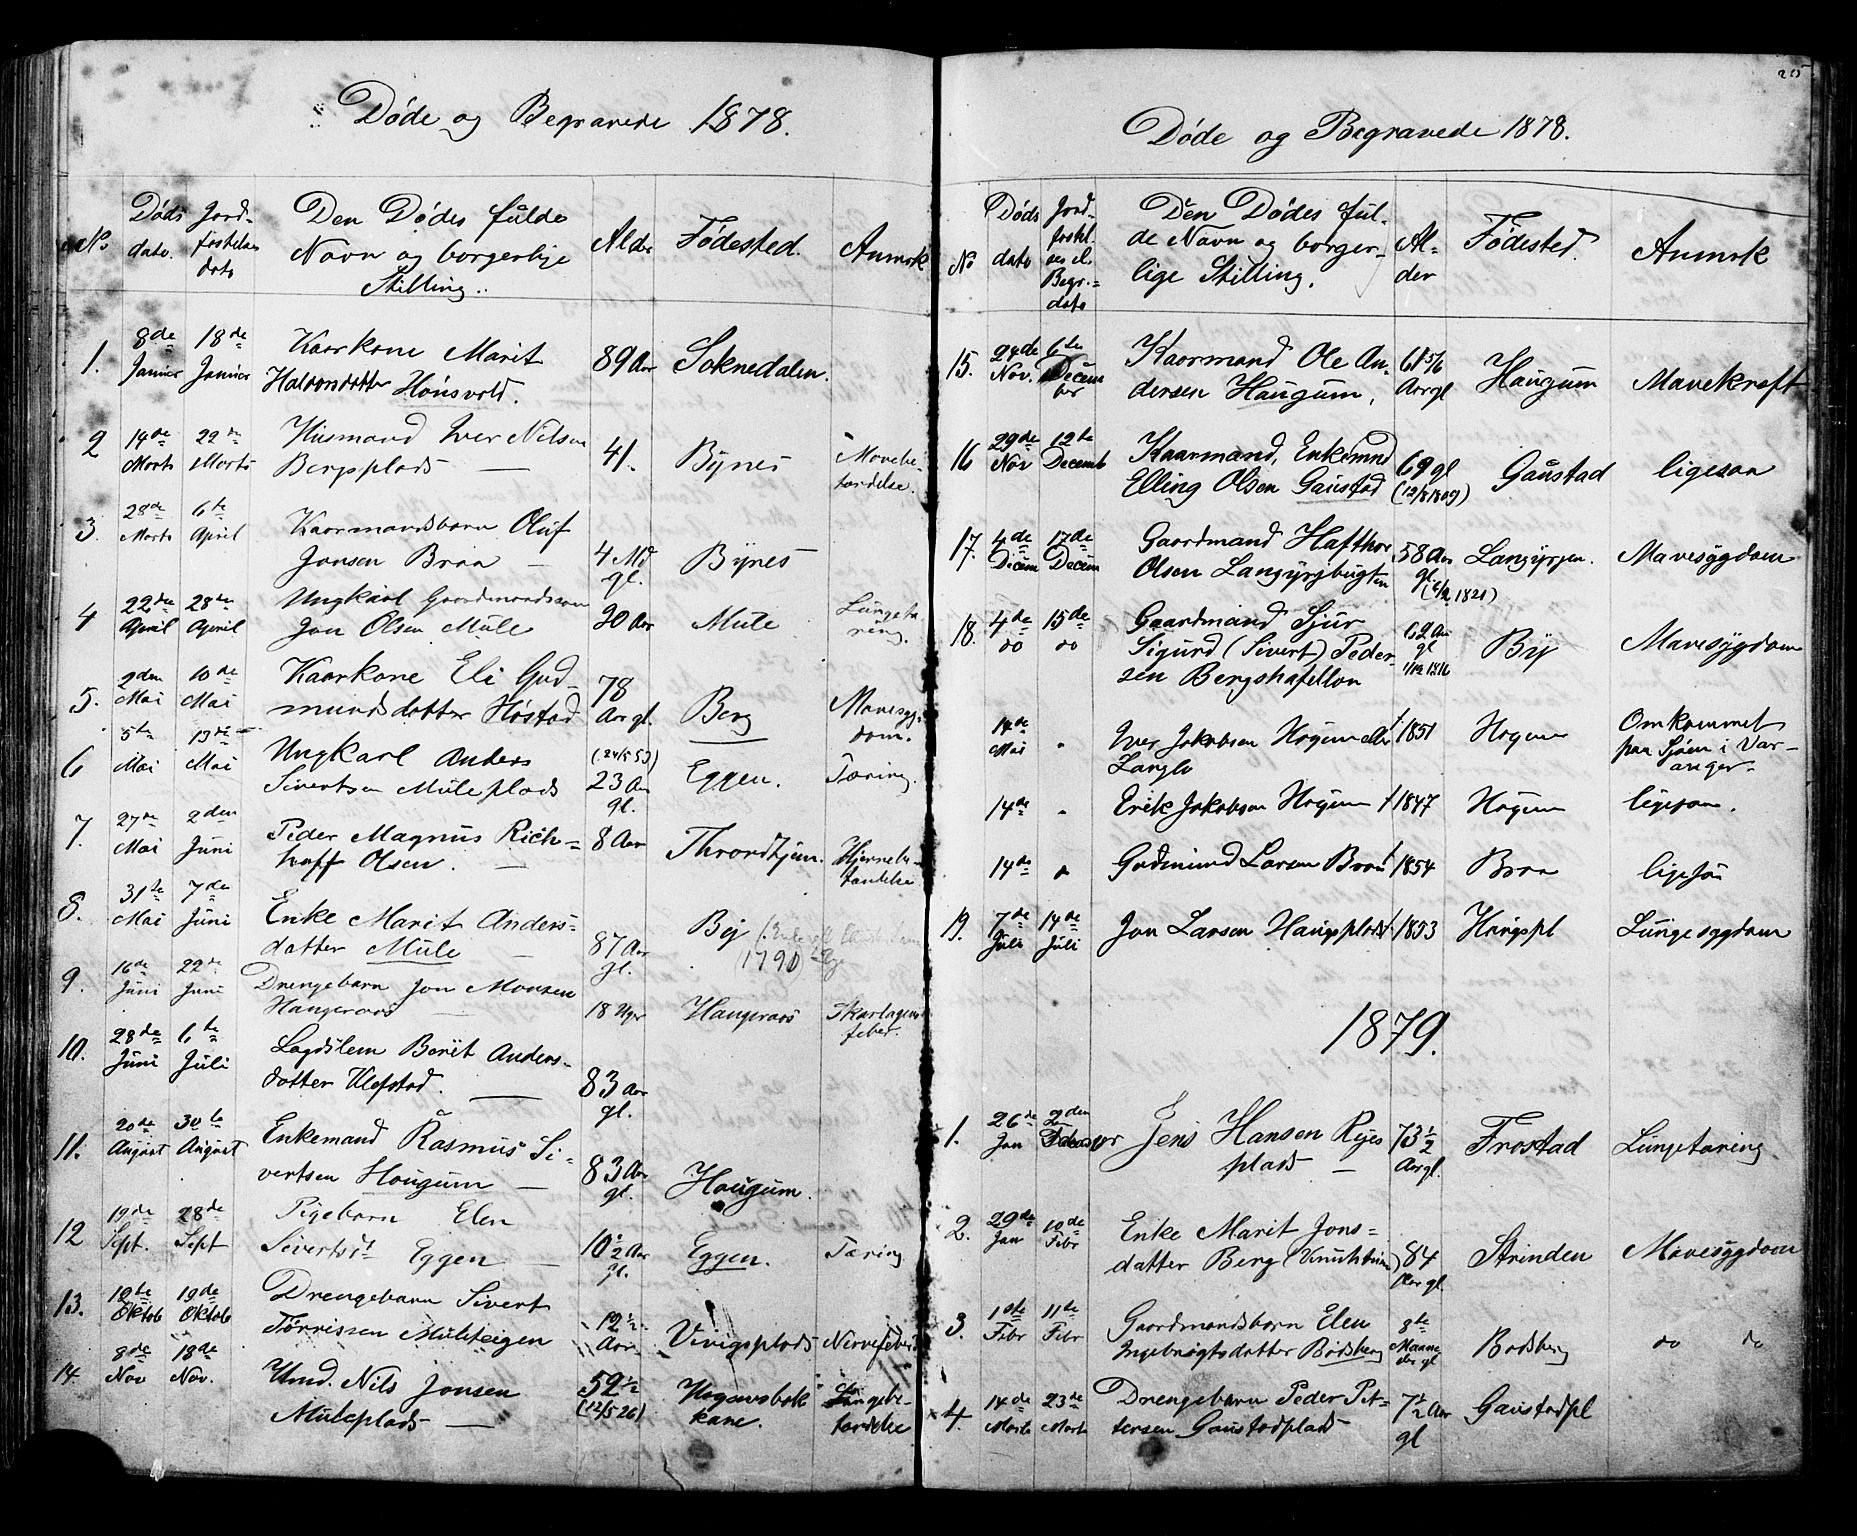 Døde og Begravede 1878.
No
Døds dato.
Jordfæstelses dato
Den Dødes fulde Navn og borgerlige Stilling.
Alder
Fødested.
Anmærk
1. 8de Januer 18de Januer Kaarkone Marit Halvorsdatter Hønsvold. 89 Aar Soknedalen.
2 14de Marts 22de Marts Husmand Iver Nilsen Bergsplads — 41. Bynes Mavebetændelse.
3. 28de Marts 6te April Kaarmandsbarn Oluf Jonsen Braa — 4 Md gl. Bynes
4 22de April 28de April Ungkarl Gaardmandssøn Jon Olsen Mule 20 Aar Mule Lungetæring.
5. 2den Mai 10de Mai Kaarkone Eli Gudmundsdatter Høstad 78 Aar gl. Berg Mavesygdom.
6 5te Mai 13de Mai Ungkarl Anders Sivertsen Muleplads (24/5 53) 23 Aar gl. Eggen. Tæring.
7. 27de Mai 2den Juni Peder Magnus Richhoff Olsen. — 8 Aar Throndhjem. Hjernebetændelse
8. 31te Mai 7de Juni Enke Marit Andersdatter Mule — 87 Aar gl. By (1790)
9. 16de Juni 22de Juni Drengebarn Jon Monsen Haugeraas — 18 Uger Haugeraas Skarlagensfeber.
10. 28de Juni 6te Juli Lægdslem Berit Andersdatter Klefstad. — 83 Aar gl.
11. 20de August 30te August Enkemand Rasmus Sivertsen Hougum — 83 Aar gl. Hougum.
12 19de Sept. 28de Sept Pigebarn Elen Sivertsdt Eggen — 10 1/2 Aar gl. Eggen. Tæring
13. 12te Oktob 19de Oktob Drengebarn Sivert Tørrissen Multeigen 12 1/2 Aar Vivigsplads Nervefeber
14 8de Nov 18de Nov. Umd. Nils Jonsen Muleplads — 52 1/2 (12/5 26) Lungebetændelse
25
Døde og Begravede 1878.
No
Døds dato
Jordfæstelses el. Begr.=dato
Den Dødes fulde Navn og borgerlige Stilling.
Alder
Fødested.
Anmærk
15. 24de Nov. 6te December Kaarmand Ole Andersen Haugum, 61 5/6 Aar gl Haugum Mavekræft
16 29de Nov 12te Decemb Kaarmand, Enkemnd Elling Olsen Gaustad 69 gl (12/8 1809) Gaustad ligesaa
17. 4de Decem 17de Decem Gaardmand Hafthor Olsen Langørjbugten 58 Aar gl 1821) Langørjen. Mavesygdom
18. 4de do 15de do Gaardmand Sjur Sigurd (Sivert) Pedersen Bergshafellon 62 Aar gl 1816 By Mavesygdom
14de Mai " Iver Jakobsen Hogum eller Langlo f 1851 Hogum Omkommet paa Sjøen i Varanger.
14de " Erik Jakobsen Hogum f 1847 Hogum ligesaa.
14de " Gudmund Larsen Braa f 1854 Braa ligesaa
19. 7de Juli 14de Juli Jon Larsen Haugsplads f 1853 Haugspl Lungesygdom
1879.
1. 26de Jan 2den Februar Jens Hansen Ryesplads — 73 1/2 Aar gl. Frostad Lungetæring
2. 29de Jan 10de Febr Enke Marit Jonsdatter Berg 84 Aar gl. Strinden Mavesygdom
3. 1ste Febr 11te Febr Gaardmandsbarn Elen Ingebrigtsdatter Bødsberg 8te Maaneder gl Bødsberg do do
4. 14de Marts 23de Mart Drengebarn Peder Pettersen Gaustadplads 7 1/2 Aar gl Gaustadpl